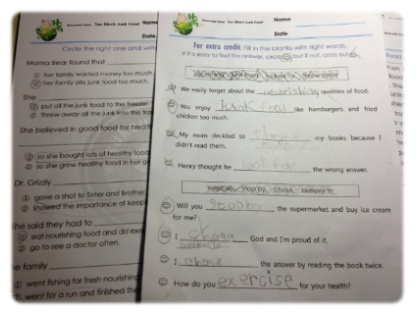 Circle the right one and writ
Mama Bear found that
① her family wasted money too much.
② her family ate junk food too much.
She
① put all the junk food to the freezer
② threw away all the junk into the tra
She believed in good food for health
① so she bought lots of healthy food
② so she grew healthy food in her ga
Dr. Grizzly
① gave a shot to Sister and Brother
② showed the importance of keep
She said they had to
① eat nourishing food and do exer
② go to see a doctor often.
he family
① went fishing for fresh nourishing
② went for a run and finished the
Too Much Junk Food
Name
Date
For extra credit: Fill in the blanks with right words.
If it's easy to find the answer, circle but if not, cross out
We easily forget about the nourishing qualities of food.
You enjoy junk food like hamburgers and fried
chicken too much.
My mom decided to my books because I
didn't read them.
Henry thought he look for the wrong answer.
stop by, chose, believe in
Will you stop by the supermarket and buy ice cream
for me?
I chose God and I'm proud of it.
believe in
I chose the answer by reading the book twice.
How do you exercise for your health?